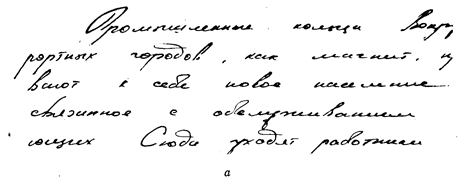 Промышленные кольца вокр
рортных городов, как магнит, п
вают к себе новое население
связанное с обслуживанием
ющих Сюда уходят работники
а